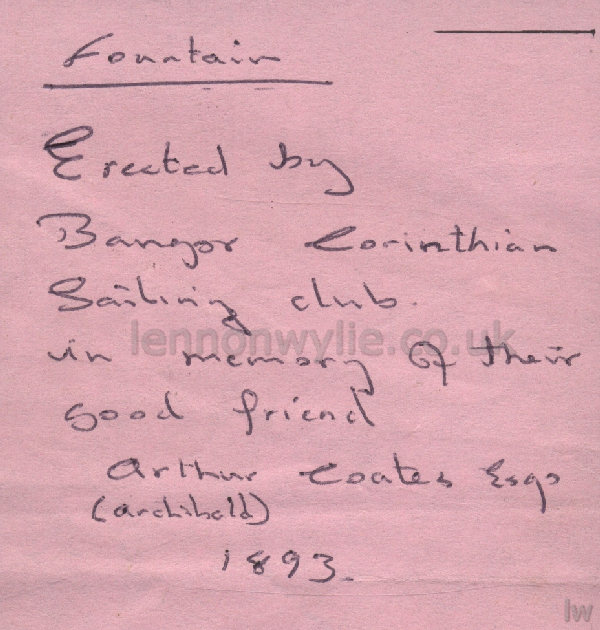 Fountain
Erected by
Bangor Corinthian
Sailing club.
lennonwylie.co.uk
in memory of their
good friend
Arthur Coates Esqr
(archibald)
1893.
lw